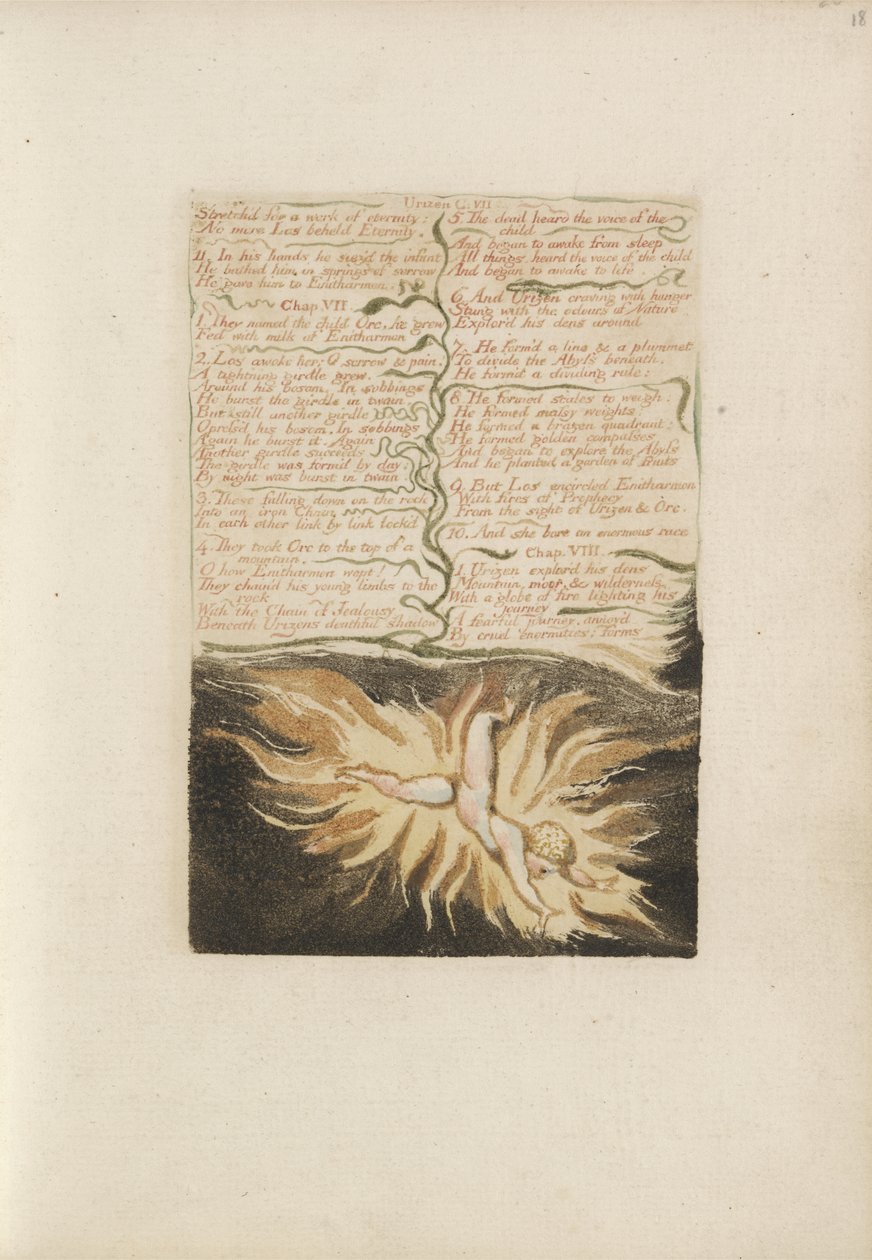 18
Urizen C. VII
Stretch'd for a work of eternity;
No more Los beheld Eternity.
11. In his hands he siez'd the infant
He bathed him in springs of sorrow
He gave him to Enitharmon.
Chap. VII.
1. They named the child Orc, he grew
Fed with milk of Enitharmon
2. Los awoke her; O sorrow & pain!
A tight'ning girdle grew,
Around his bosom. In sobbings
He burst the girdle in twain,
But still another girdle
Opress'd his bosom. In sobbings
Again he burst it. Again
Another girdle succeeds
The girdle was form'd by day;
By night was burst in twain.
3. These falling down on the rock
Into an iron Chain
In each other link by link lock'd
4. They took Orc to the top of a
mountain.
O how Enitharmon wept!
They chain'd his young limbs to the
rock
With the Chain of Jealousy
Beneath Urizens deathful shadow
5. The dead heard the voice of the
child
And began to awake from sleep
All things. heard the voice of the child
And began to awake to life.
6. And Urizen craving with hunger
Stung with the odours of Nature
Explor'd his dens around
7. He form'd a line & a plummet
To divide the Abyss beneath.
He form'd a dividing rule:
8. He formed scales to weigh;
He formed massy weights;
He formed a brazen quadrant;
He formed golden compasses
And began to explore the Abyss
And he planted a garden of fruits
9. But Los encircled Enitharmon
With fires of Prophecy
From the sight of Urizen & Orc.
10. And she bore an enormous race
Chap. VIII.
1. Urizen explor'd his dens
Mountain, moor, & wilderness,
With a globe of fire lighting his
journey
A fearful journey, annoy'd
By cruel enormities: forms